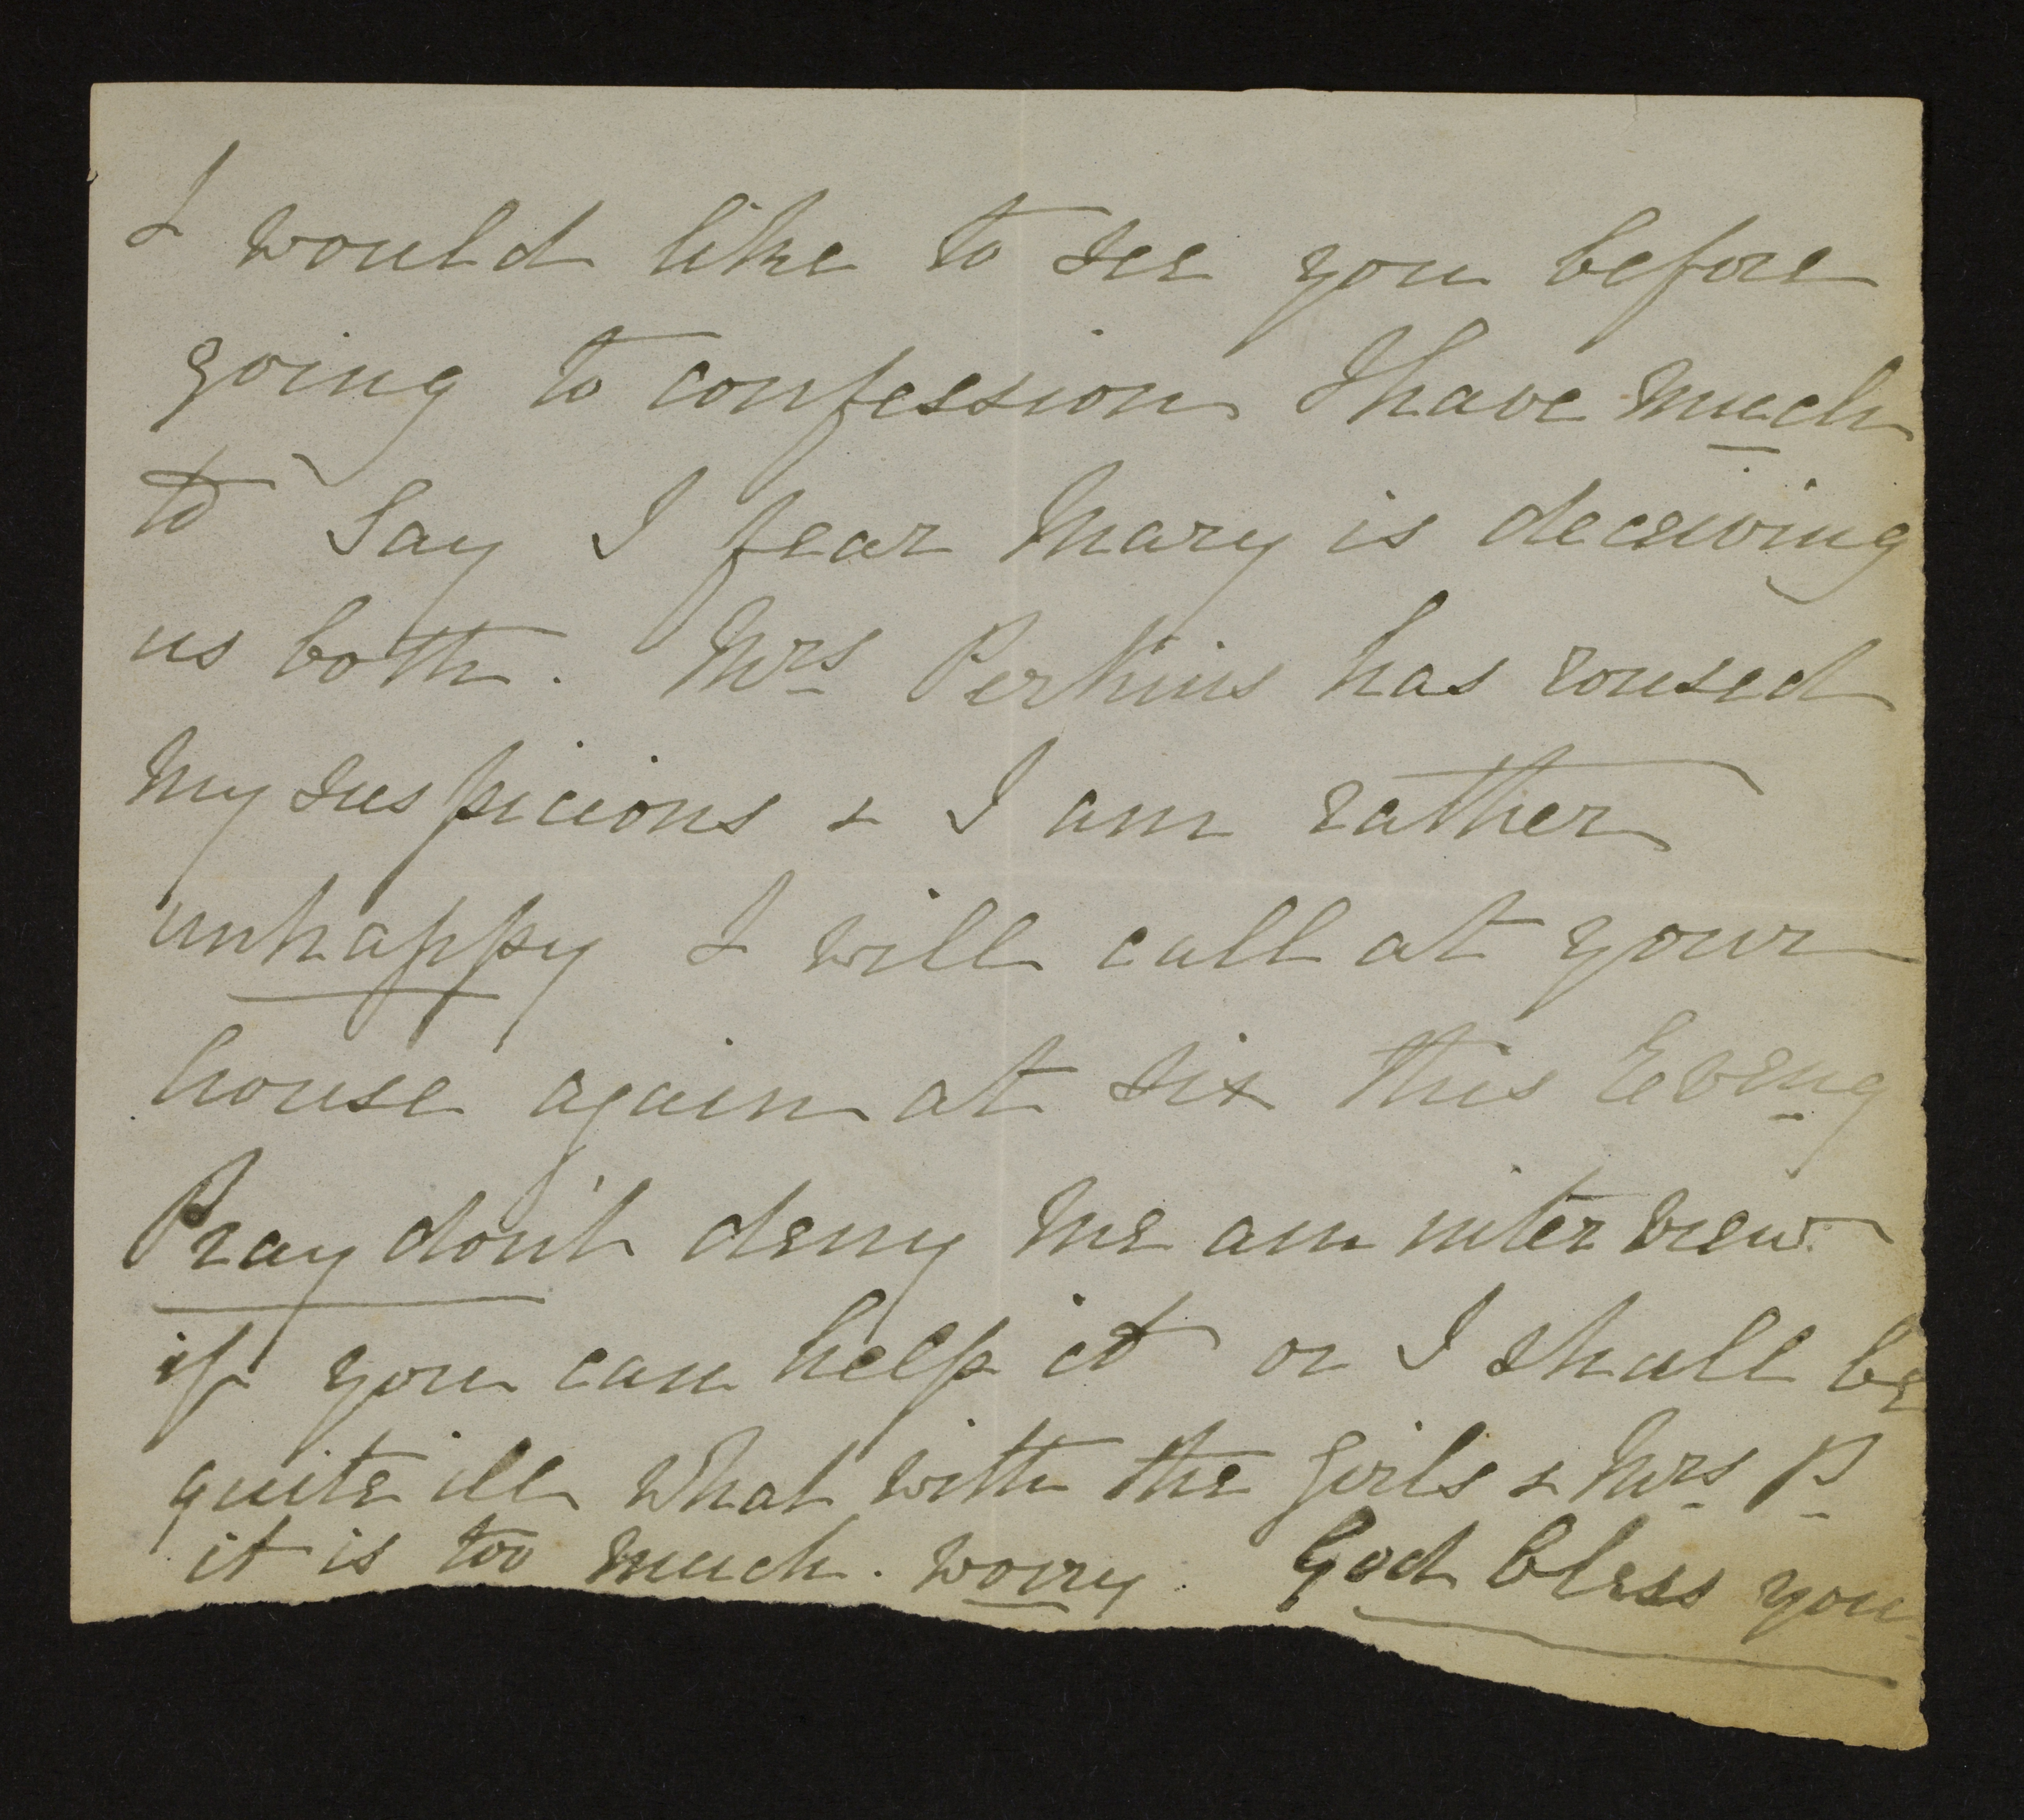 I would like to see you before
going to confession I have much
to say I fear Mary is deceiving
us both. Mrs Perkins has roused
my suspicions & I am rather
unhappy I will call at your
house again at six this Eveng
Pray don't deny me an interview
if you can help it or I shall be
quite ill what with the girls & Mrs P
it is too much. worry. God bless you